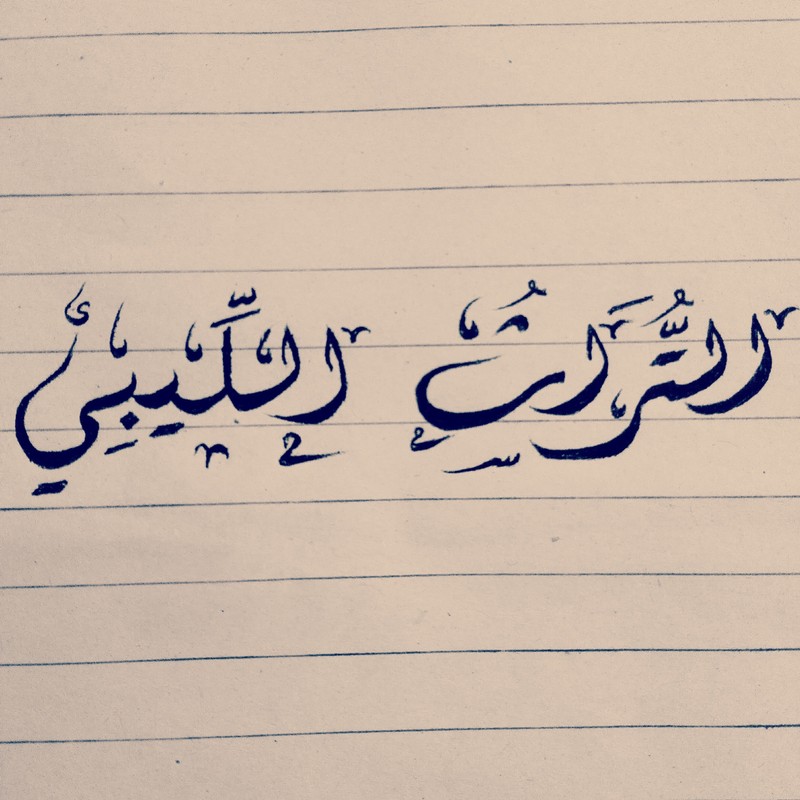 التُّرَاثُ اللِّيبِيْ